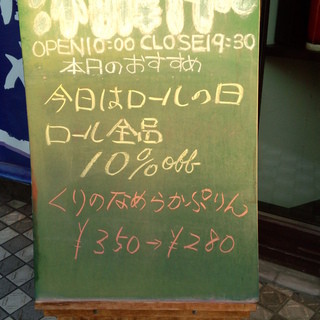 OPEN10:00 CLOSE19:30
本日のおすすめ
今日はロールの日
ロール全品
10%off
くりのなめらかぷりん
¥350→¥280